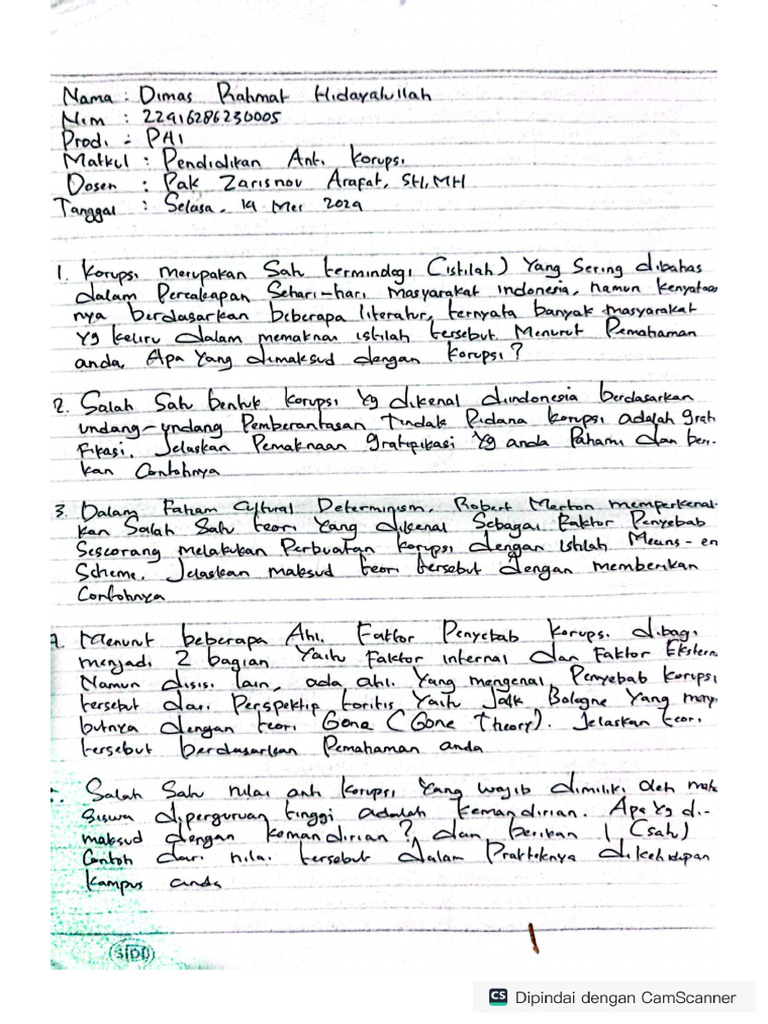 Nama : Dimas Rahmat Hidayatullah
Nim : 22916286230005
Prodi : PAI
Matkul : Pendidikan Anti Korupsi
Dosen : Pak Zarisnov Arafat, SH, MH
Tanggal : Selasa, 14 Mei 2024
1. Korupsi merupakan Satu terminologi (istilah) Yang Sering dibahas
dalam Percakapan Sehari-hari masyarakat indonesia, namun kenyataan
nya berdasarkan beberapa literatur, ternyata banyak masyarakat
yg keliru dalam memaknai istilah tersebut. Menurut Pemahaman
anda, Apa Yang dimaksud dengan korupsi?
2. Salah Satu bentuk korupsi Yg dikenal diindonesia berdasarkan
undang-undang Pemberantasan Tindak Pidana korupsi adalah grati
Fikasi. Jelaskan Pemaknaan gratipikasi Yg anda Pahami dan beri-
kan Contohnya
3. Dalam Faham Cultural Determinism, Robert Merton memperkenal-
kan Salah Satu teori Yang dikenal Sebagai Faktor Penyebab
Seseorang melakukan Perbuatan korupsi dengan istilah Means-en
Scheme. Jelaskan maksud teori tersebut dengan memberikan
Contohnya
4. Menurut beberapa Ahli Faktor Penyebab korupsi dibagi
menjadi 2 bagian Yaitu Faktor internal dan Faktor Ekstern
Namun disisi lain, ada ahli Yang mengenai Penyebab korupsi
tersebut dari Perspektip toritis Yaitu Jack Bologne Yang meny
butnya dengan teori Gone (Gone Theory). Jelaskan teori
tersebut berdasarkan Pemahaman anda
Salah Satu nilai anti korupsi Yang wajib dimiliki oleh maha
Siswa diperguruan tinggi adalah kemandirian. Apa Yg di-
maksud dengan kemandirian? dan berikan 1 (satu)
Contoh dari nilai tersebut dalam Prakteknya dikehidupan
kampus anda
SIDU
CS Dipindai dengan CamScanner